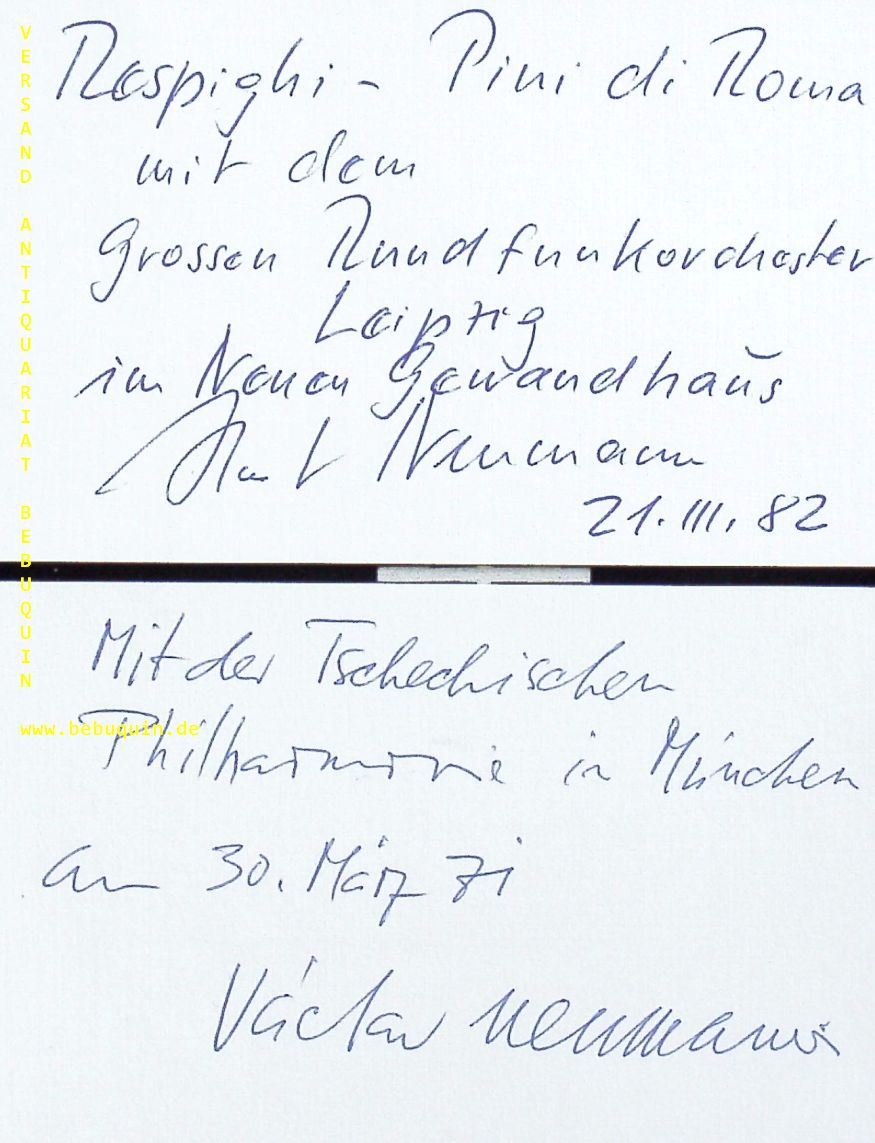 Respighi – Pini di Roma
mit dem
Grossen Rundfunkorchester
Leipzig
im Neuen Gewandhaus
Kurt Neumann
21.III.82
Mit der Tschechischen
Philharmonie in München
am 30. März 71
Václav Neumann
VERSAND ANTIQUARIAT BEBUQUIN
www.bebuquin.de